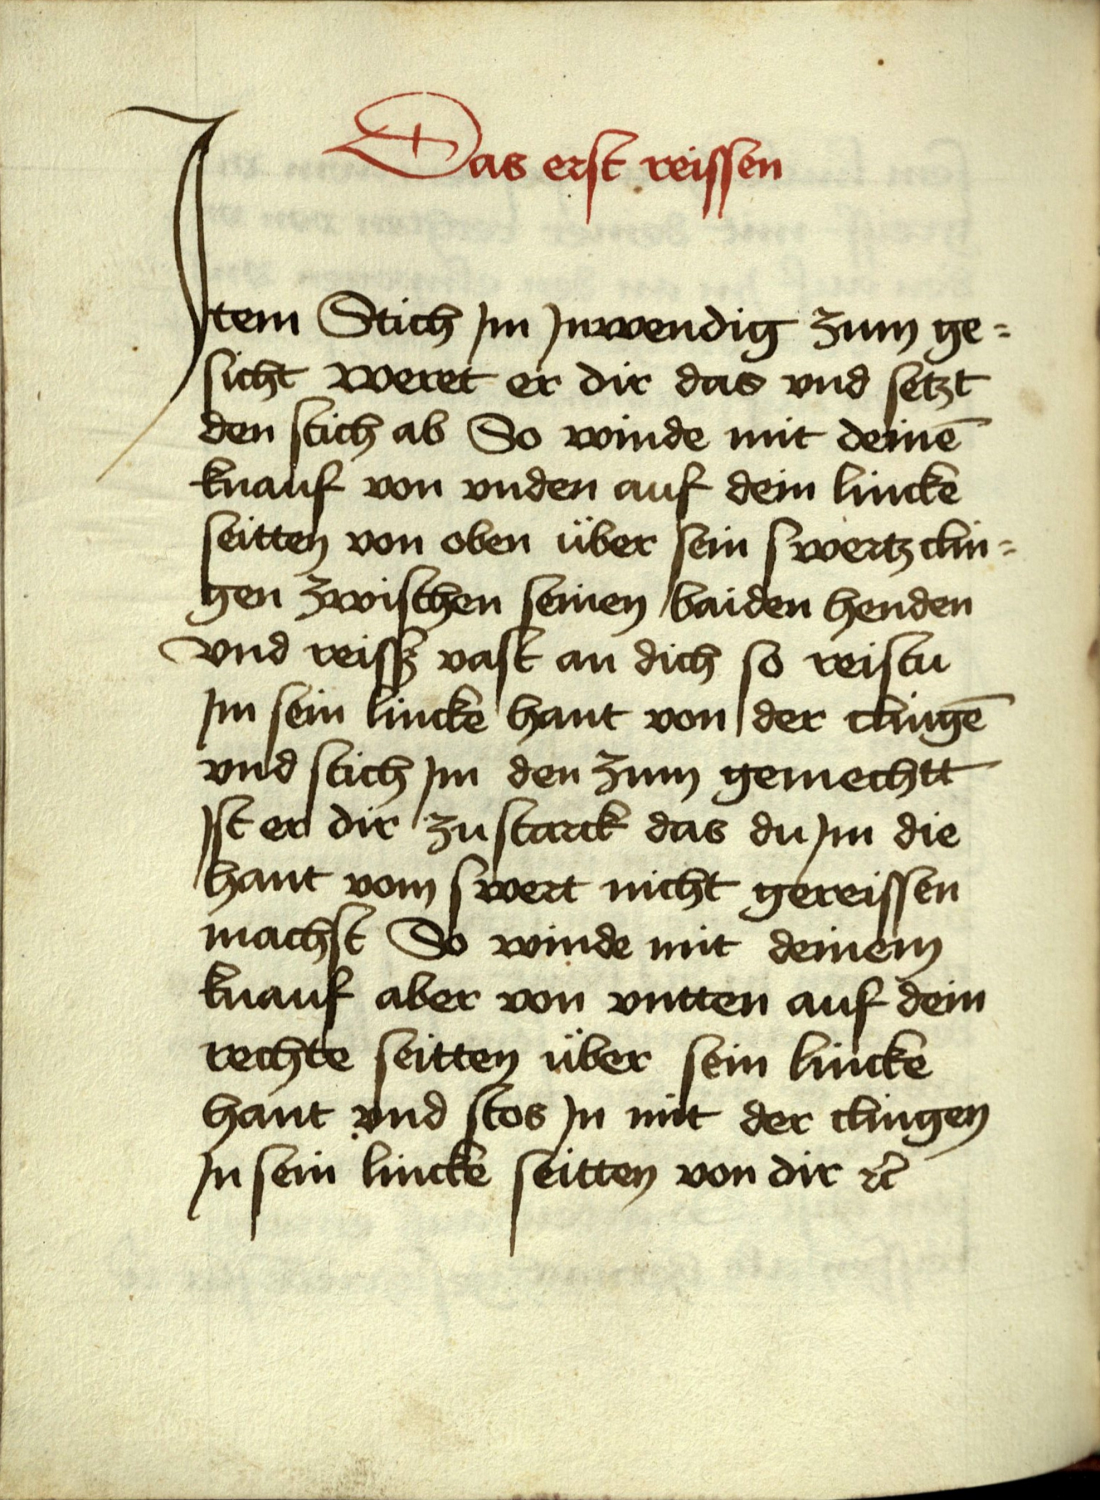 Das erst reissen
Item Stich Im Inwendig zum ge=
sicht weret er dir das vnd setzt
den stich ab So winde mit deinē
knauf von vnden auf dein lincke
seitten von oben über sein swertzclin=
gen zwischen seinen baiden henden
vnd reisß vast an dich so reistu
Im sein lincke hant von der clingē
vnd stich Im den zum gemechtt
Ist er dir zu starck das du Im die
hant vom swert nicht gereissen
machst So winde mit deinem
knauf aber von vntten auf dein
rechte seitten über sein lincke
hant vnd stos In mit der clingen
In sein lincke seitten von dir ⁊c̃